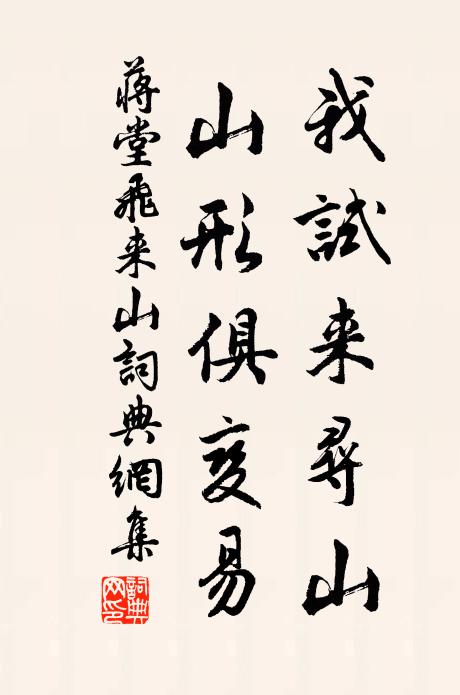 我試来尋山
山形俱变易
蒋堂飛来山詞典網集
詞典
网印